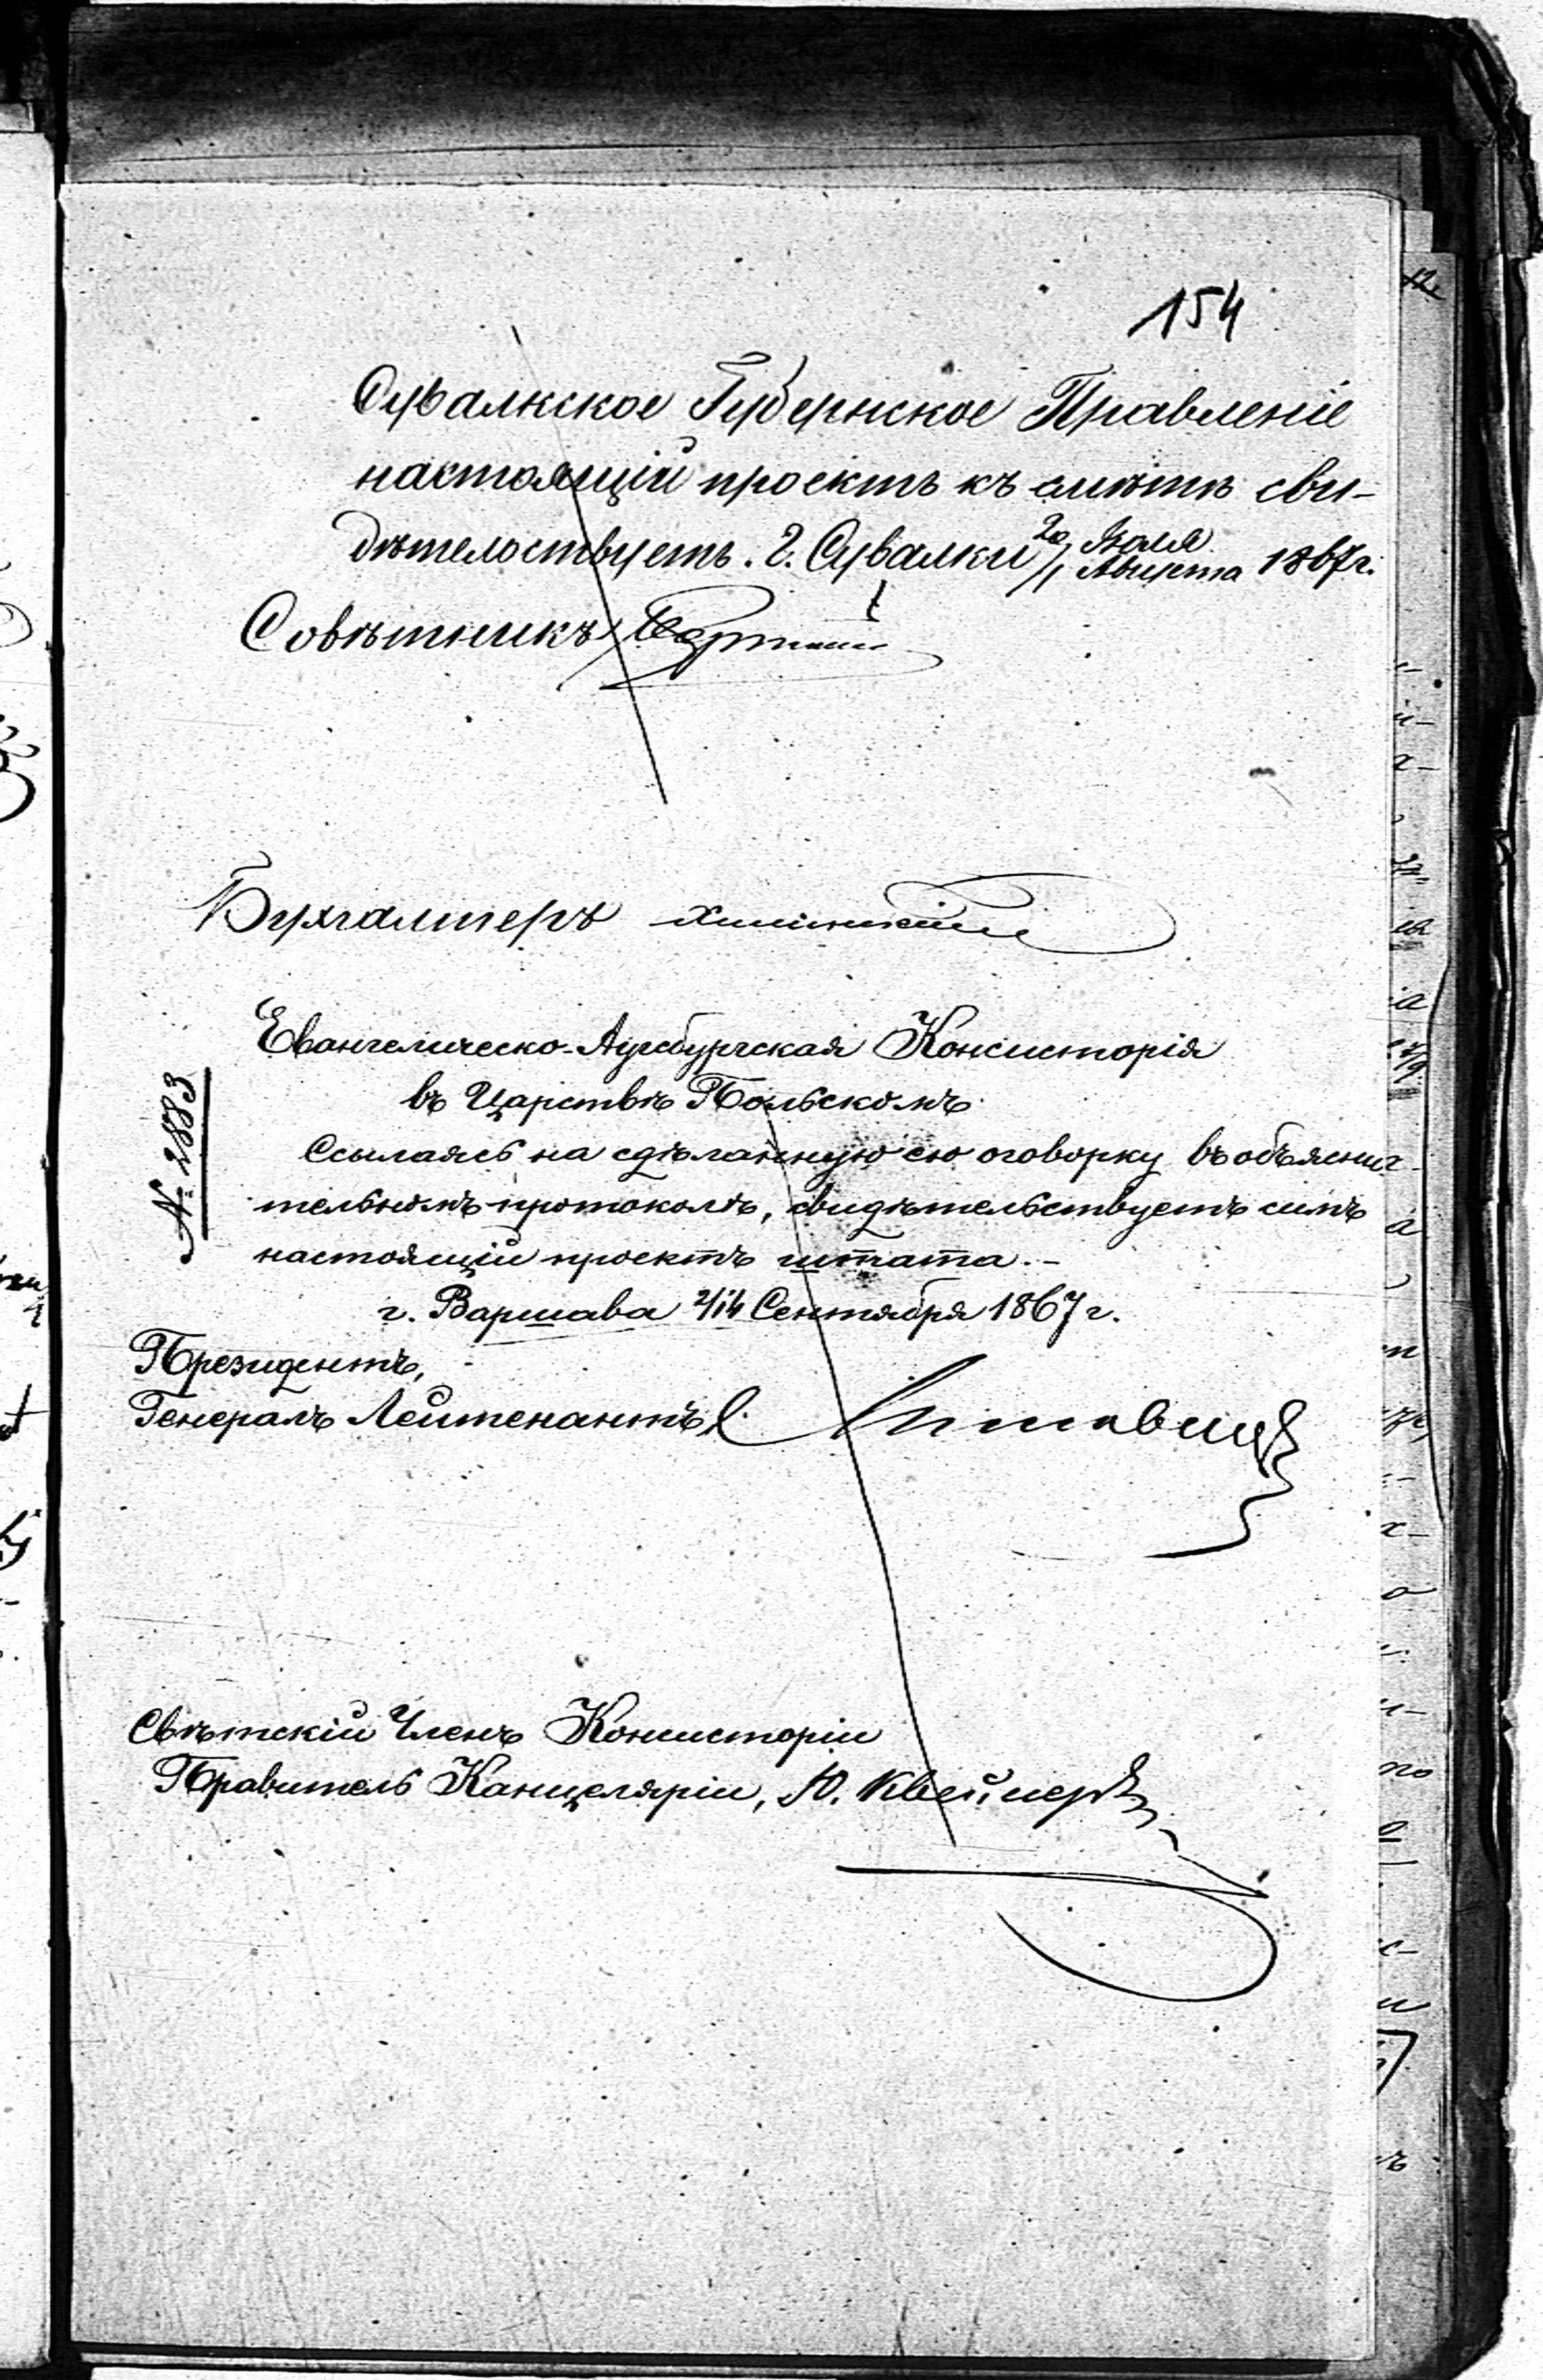 154
Сувалкское Губернское Правленіе
настоящій проектъ къ смѣтѣ сви-
дѣтелоствуетъ. г. Сувалки 20 Іюля / 1 Августа 1867г.
Совѣтникъ
Бухгалтеръ
Евангелическо-Аугсбургская Консисторія
въ Царствѣ Польскомъ
№ 2883
Ссылаясь на сдѣланную ею оговорку въ объясни-
тельномъ протоколѣ, свидѣтельствуетъ симъ
настоящій проектъ штата.-
г. Варшава 2/14 Сентября 1867 г.
Президентъ,
Генералъ Лейтенантъ
Свѣтскій Членъ Консисторіи
Правитель Канцеляріи, Ю. Квейсеръ